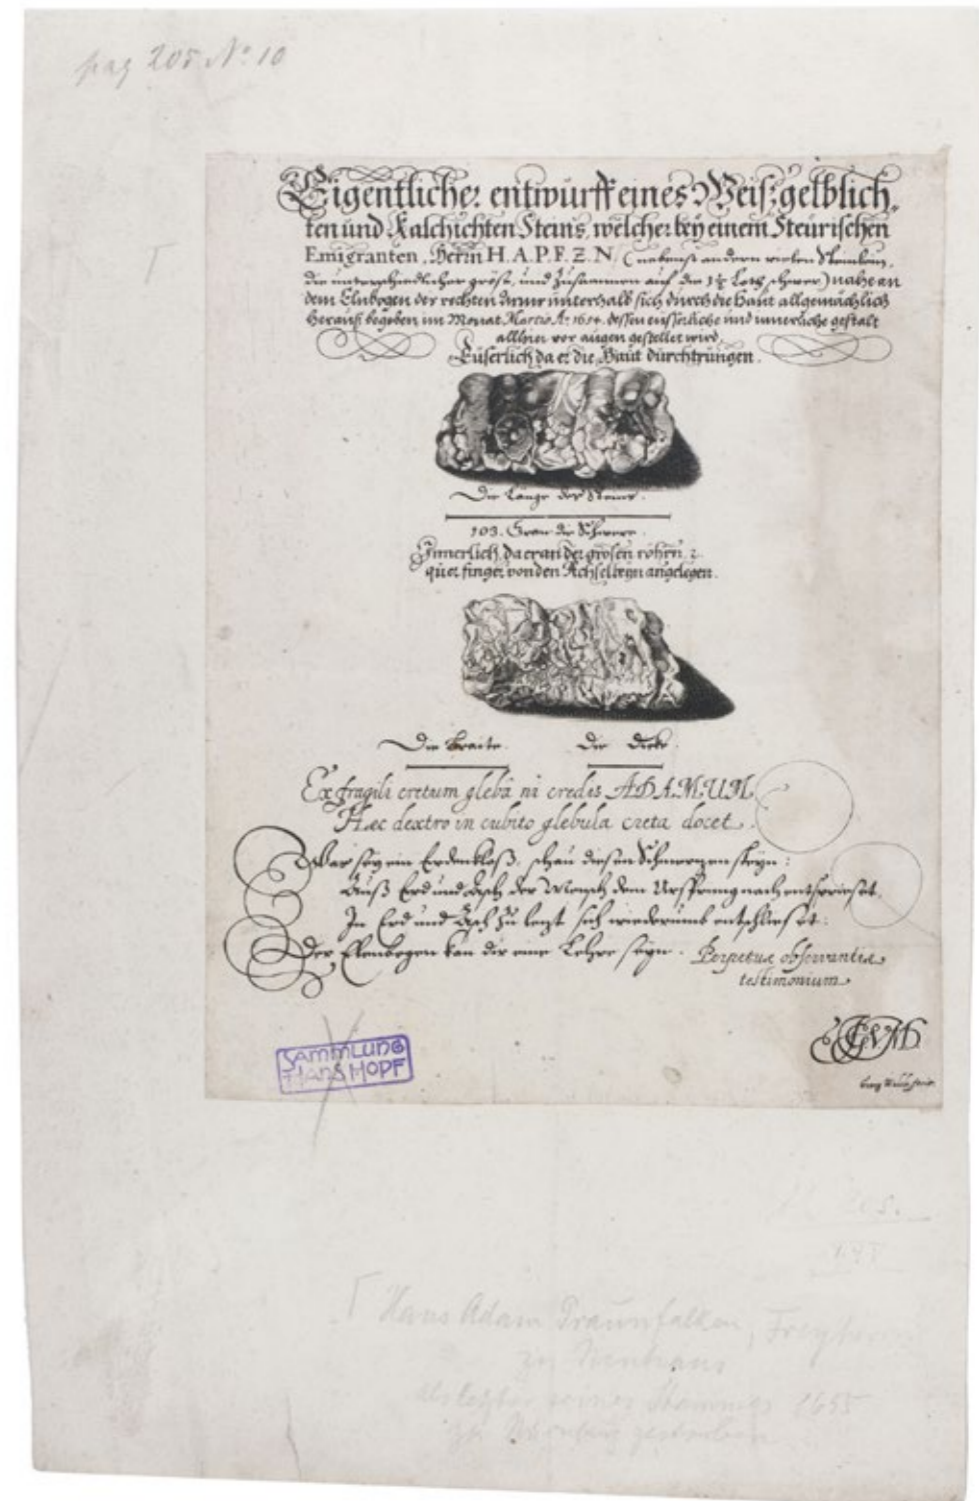 pag 205 No 10
Eigentlicher entwurff eines Weiß, gelblich,
ten und Kalchichten Steins, welcher bey einem Steurischen
Emigranten, Herrn H. A. P. F. Z. N. (nebenst andern vielen Steinlein,
die unterschiedlicher größe, und zusammen auf die 3½ Loth schwer) nahe an
dem Elnbogen der rechten Arme unterhalb sich durch die Haut allgemächlich
herauß begeben im Monat Martio Ao. 1654. dessen eusserliche und innerliche gestalt
allhier vor augen gestellet wird.
Euserlich da er die Haut durchtrungen.
Die Länge des Steins.
103. Gran die Schwere.
Innerlich, da er an der grosen röhren 2
quer finger von den Achselbein angelegen.
Die Braite. Die Dicke.
Ex fragili cretum glebâ ni credis ADAMUM
Hæc dextro in cubito glebula creta docet.
Wer sey ein Erdenkloß, schau diesen Schmerzen steyn:
Auß Erd und Asch der Mensch dem Ursprung nach entsprieset.
In Erd und Asch zu letzt sich wiederumb entschlieset:
Der Elenbogen kan dir eine Lehre seyn. Perpetuæ observantiæ
testimonium
SAMMLUNG
HANS HOPF
Hans Adam Praunfalken, Freyherr
zu Neuhaus
als letzter seines Stammes 1655
zu Nürnberg gestorben